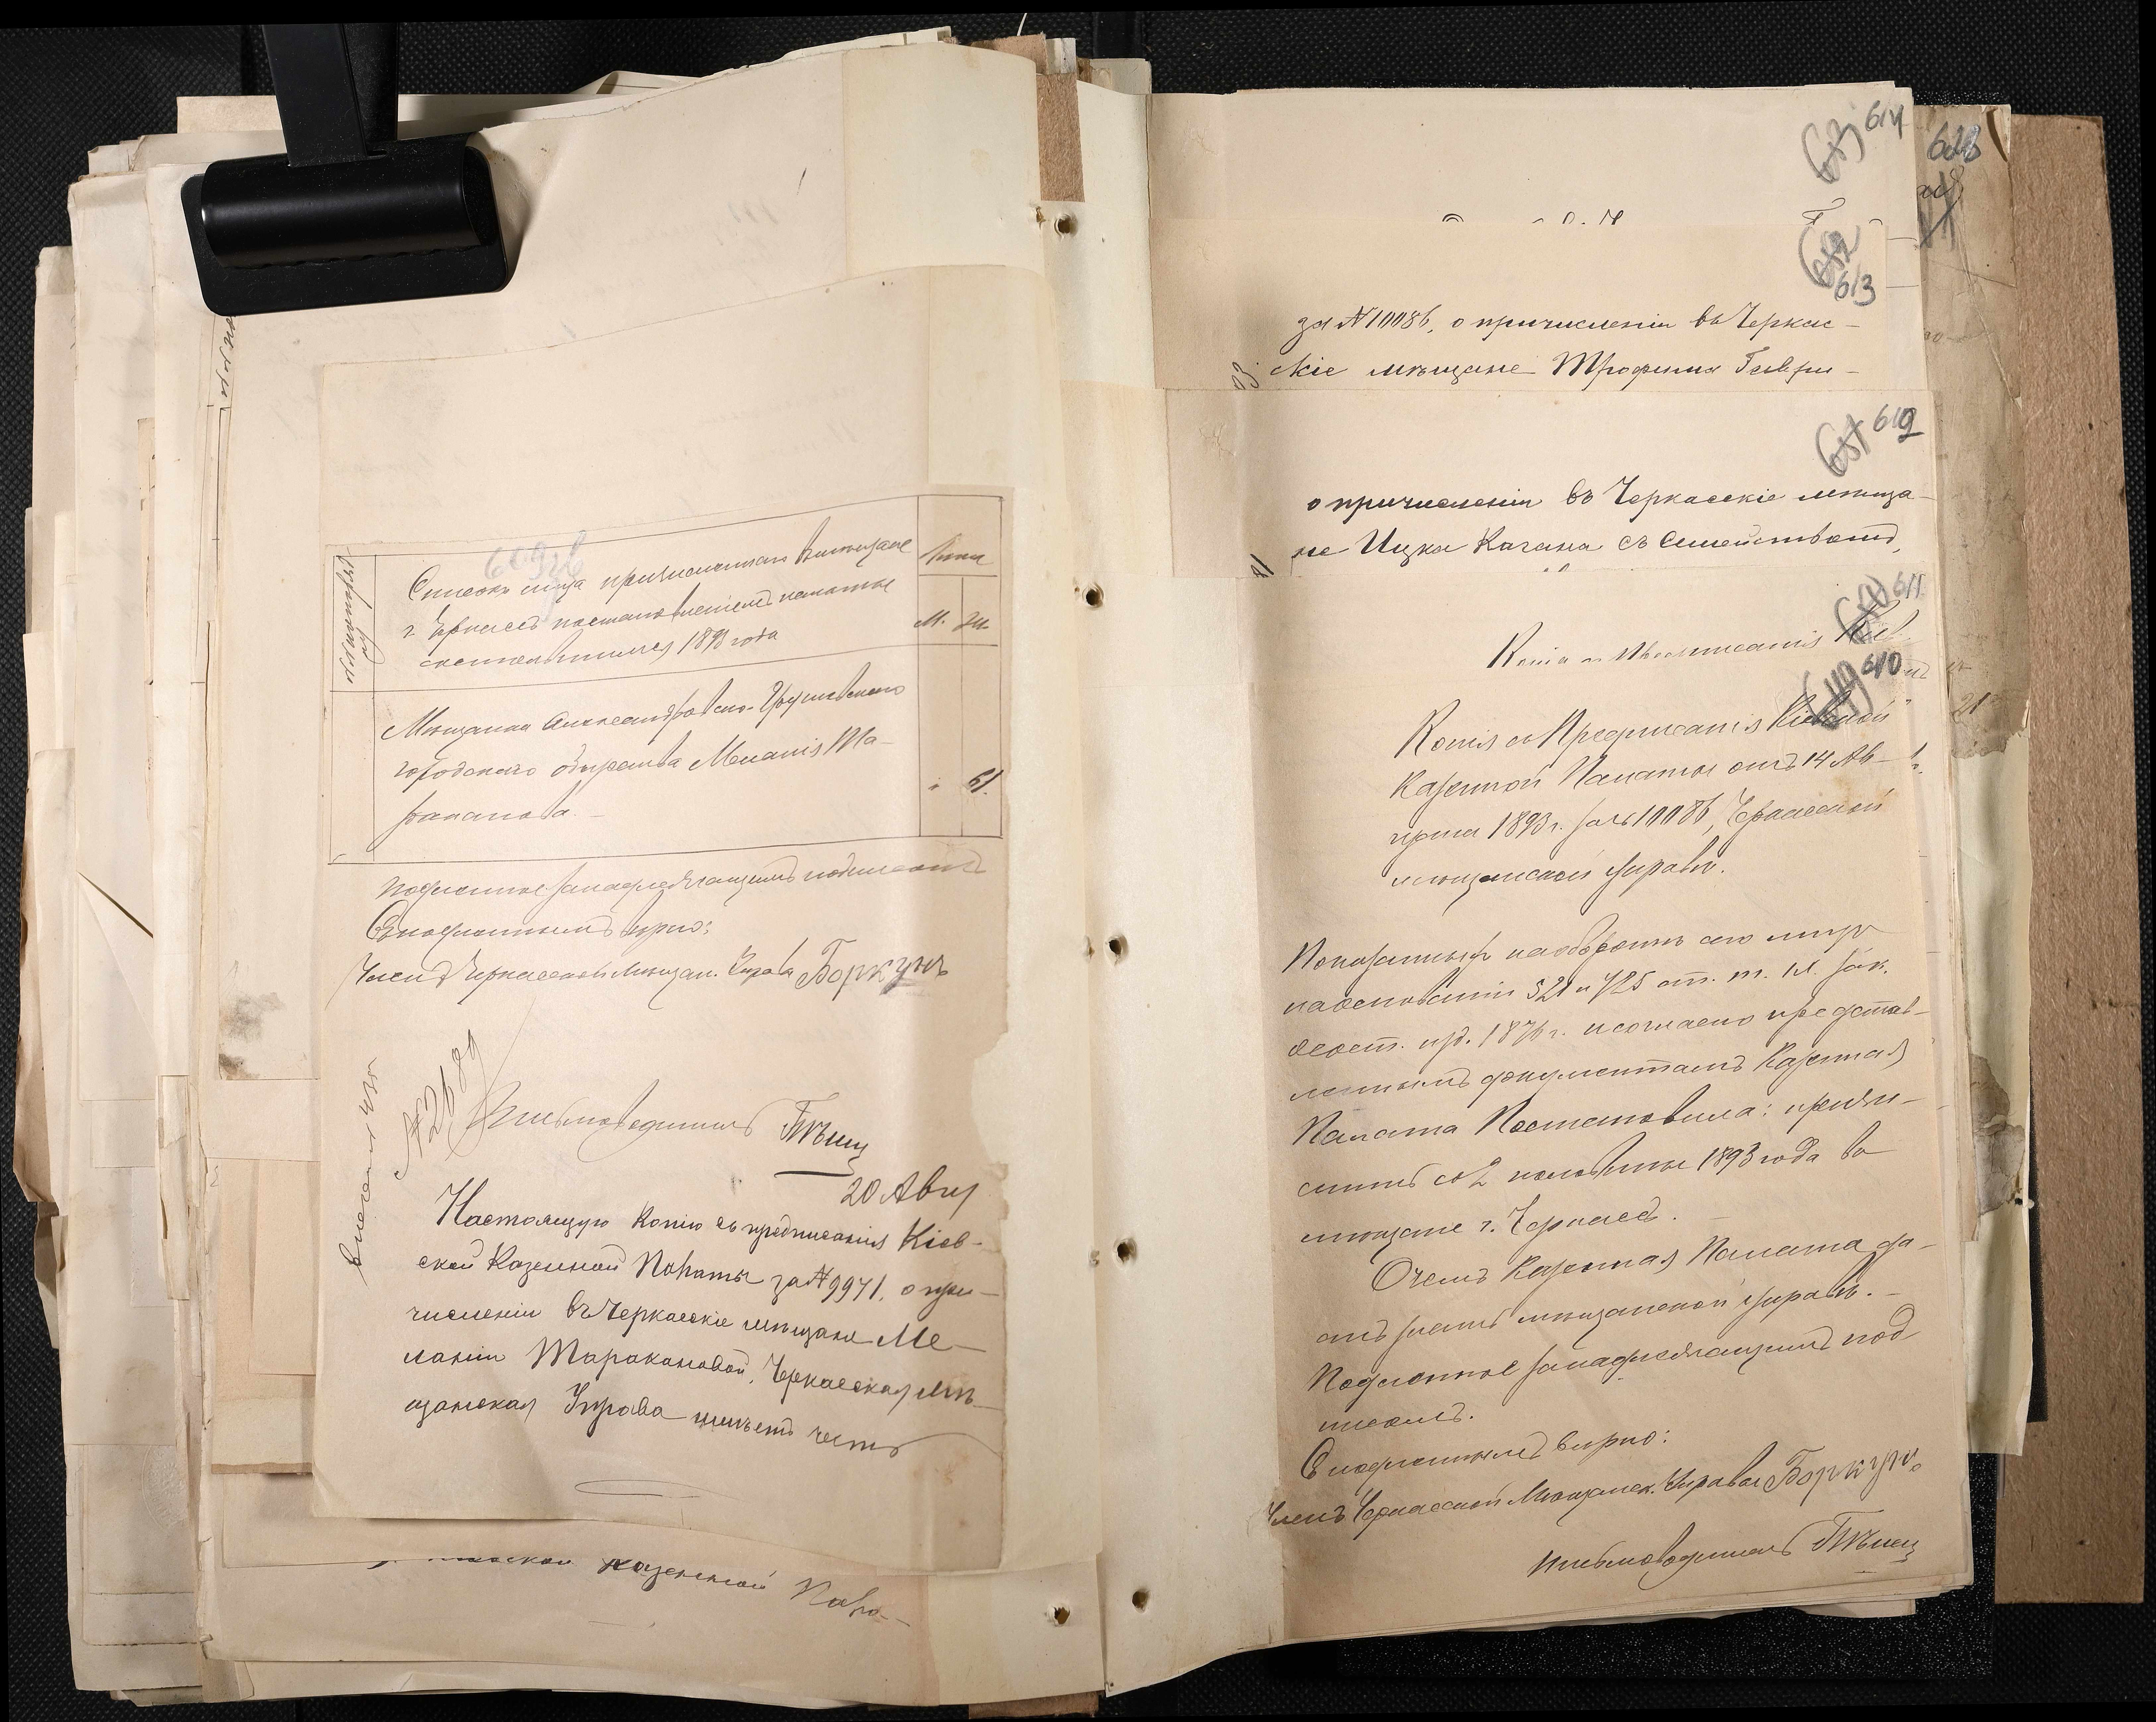 609 зв
Списокъ лица причисленнаго въ мѣщане
г. Черкассъ постановленіемъ палаты
состоявшимся 1893 года
М. Ж.
Мѣщанка Александровско-Грушевскаго
городского общества Меланія Та-
раканова.
" 61.
Подлинное за надлежащимъ подписомъ
Съ подлиннымъ вѣрно:
Членъ Черкасской Мѣщан. Управы Боркунъ
№ 2609
Письмоводитель
20 Авгу
Настоящую копію съ предписанія Кіев-
ской Казенной Палаты за № 9971, о при-
численіи въ Черкасскіе мѣщане Ме-
ланіи Таракановой, Черкасская Мѣ-
щанская Управа имѣетъ честь
Казенной Пала-
614
613
за № 10086, о причисленіи въ Черкас-
скіе мѣщане Трофима Гаври-
612
о причисленіи въ Черкасскіе мѣща-
не Ицка Кагана съ семействомъ,
611
Копія съ Предписанія Кіев-
610
Копія съ Предписанія Кіевской
Казенной Палаты отъ 14 Ав-
густа 1893 г. за № 10086, Черкасской
мѣщанской Управѣ.
Показанныхъ на оборотѣ сего лицъ
на основаніи 521 и 725 ст. т. IX зак.
о сост. изд. 1876 г. и согласно представ-
леннымъ документамъ Казенная
Палата Постановила: причи-
слить со 2 половины 1893 года въ
мѣщане г. Черкассъ.
О чемъ Казенная Палата да-
етъ знать мѣщанской Управѣ.
Подлинное за надлежащимъ под
писомъ.
Съ подлиннымъ вѣрно:
Членъ Черкасской Мѣщанск. Управы Боркунъ
Письмоводитель